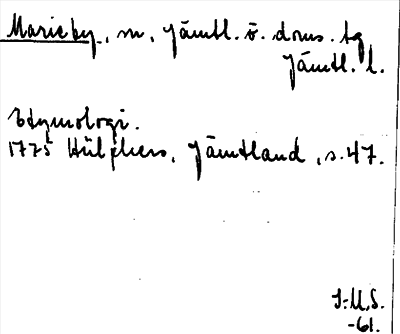 Marieby, sn, Jämtl. ö. doms. tg
Jämtl. l.
Etymologi.
1775 Hülphers, Jämtland, s. 47.
J-M.S.
-61.